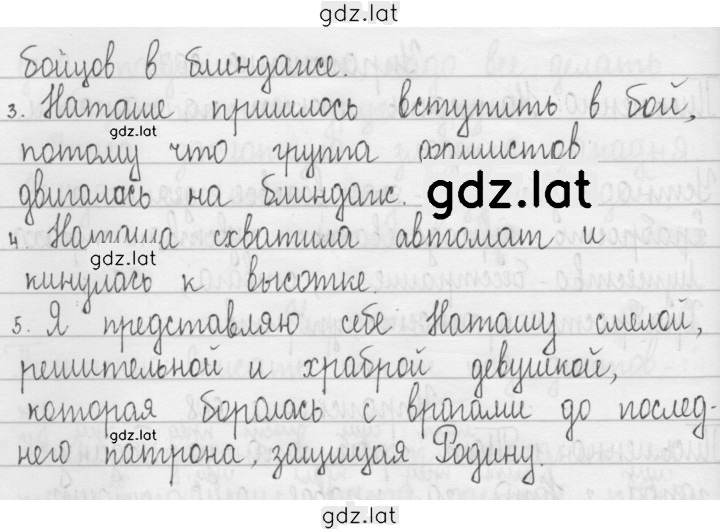 gdz.lat
бойцов в блиндаже.
3. Наташе пришлось вступить в бой,
gdz.lat
потому что группа фашистов
двигалась на блиндаж. gdz.lat
4. Наташа схватила автомат и
gdz.lat
кинулась к высотке.
5. Я представляю себе Наташу смелой,
решительной и храброй девушкой,
которая боролась с врагами до послед-
gdz.lat
него патрона, защищая Родину.
gdz.lat